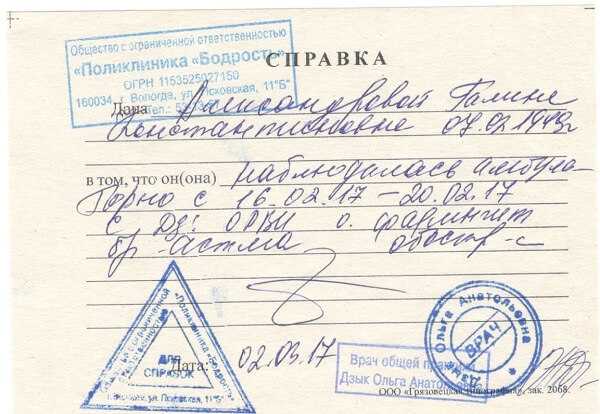 Общество с ограниченной ответственностью
«Поликлиника «Бодрость»
ОГРН 1153525027150
160034, г. Вологда, ул. Псковская, 11"Б"
Тел.:
СПРАВКА
Дана Александровой Галине
Константиновне 07.02.1949г
в том, что он(она) наблюдалась амбула-
торно с 16.02.17 – 20.02.17
с Дs: ОРВИ о. фарингит
бр. астма обостр-е
«Поликлиника "Бодрость"
ДЛЯ
СПРАВОК
Дата: 02.03.17
Ольга Анатольевна
ВРАЧ
Врач общей практики
Дзык Ольга Анатольевна
ООО «Грязовецкая типография», зак. 2068.